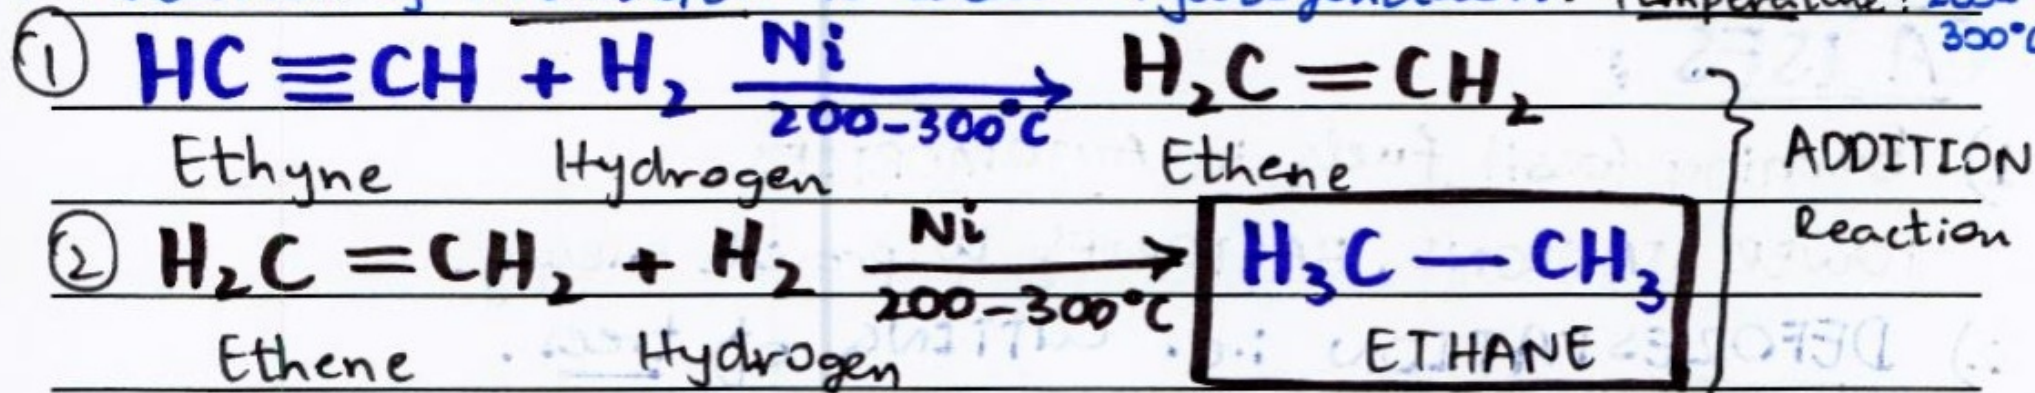 Temperature: 200-
300°C
① HC ≡ CH + H₂ Ni 200-300°C → H₂C = CH₂
Ethyne Hydrogen Ethene
ADDITION
Reaction
② H₂C = CH₂ + H₂ Ni 200-300°C → H₃C — CH₃
Ethene Hydrogen ETHANE